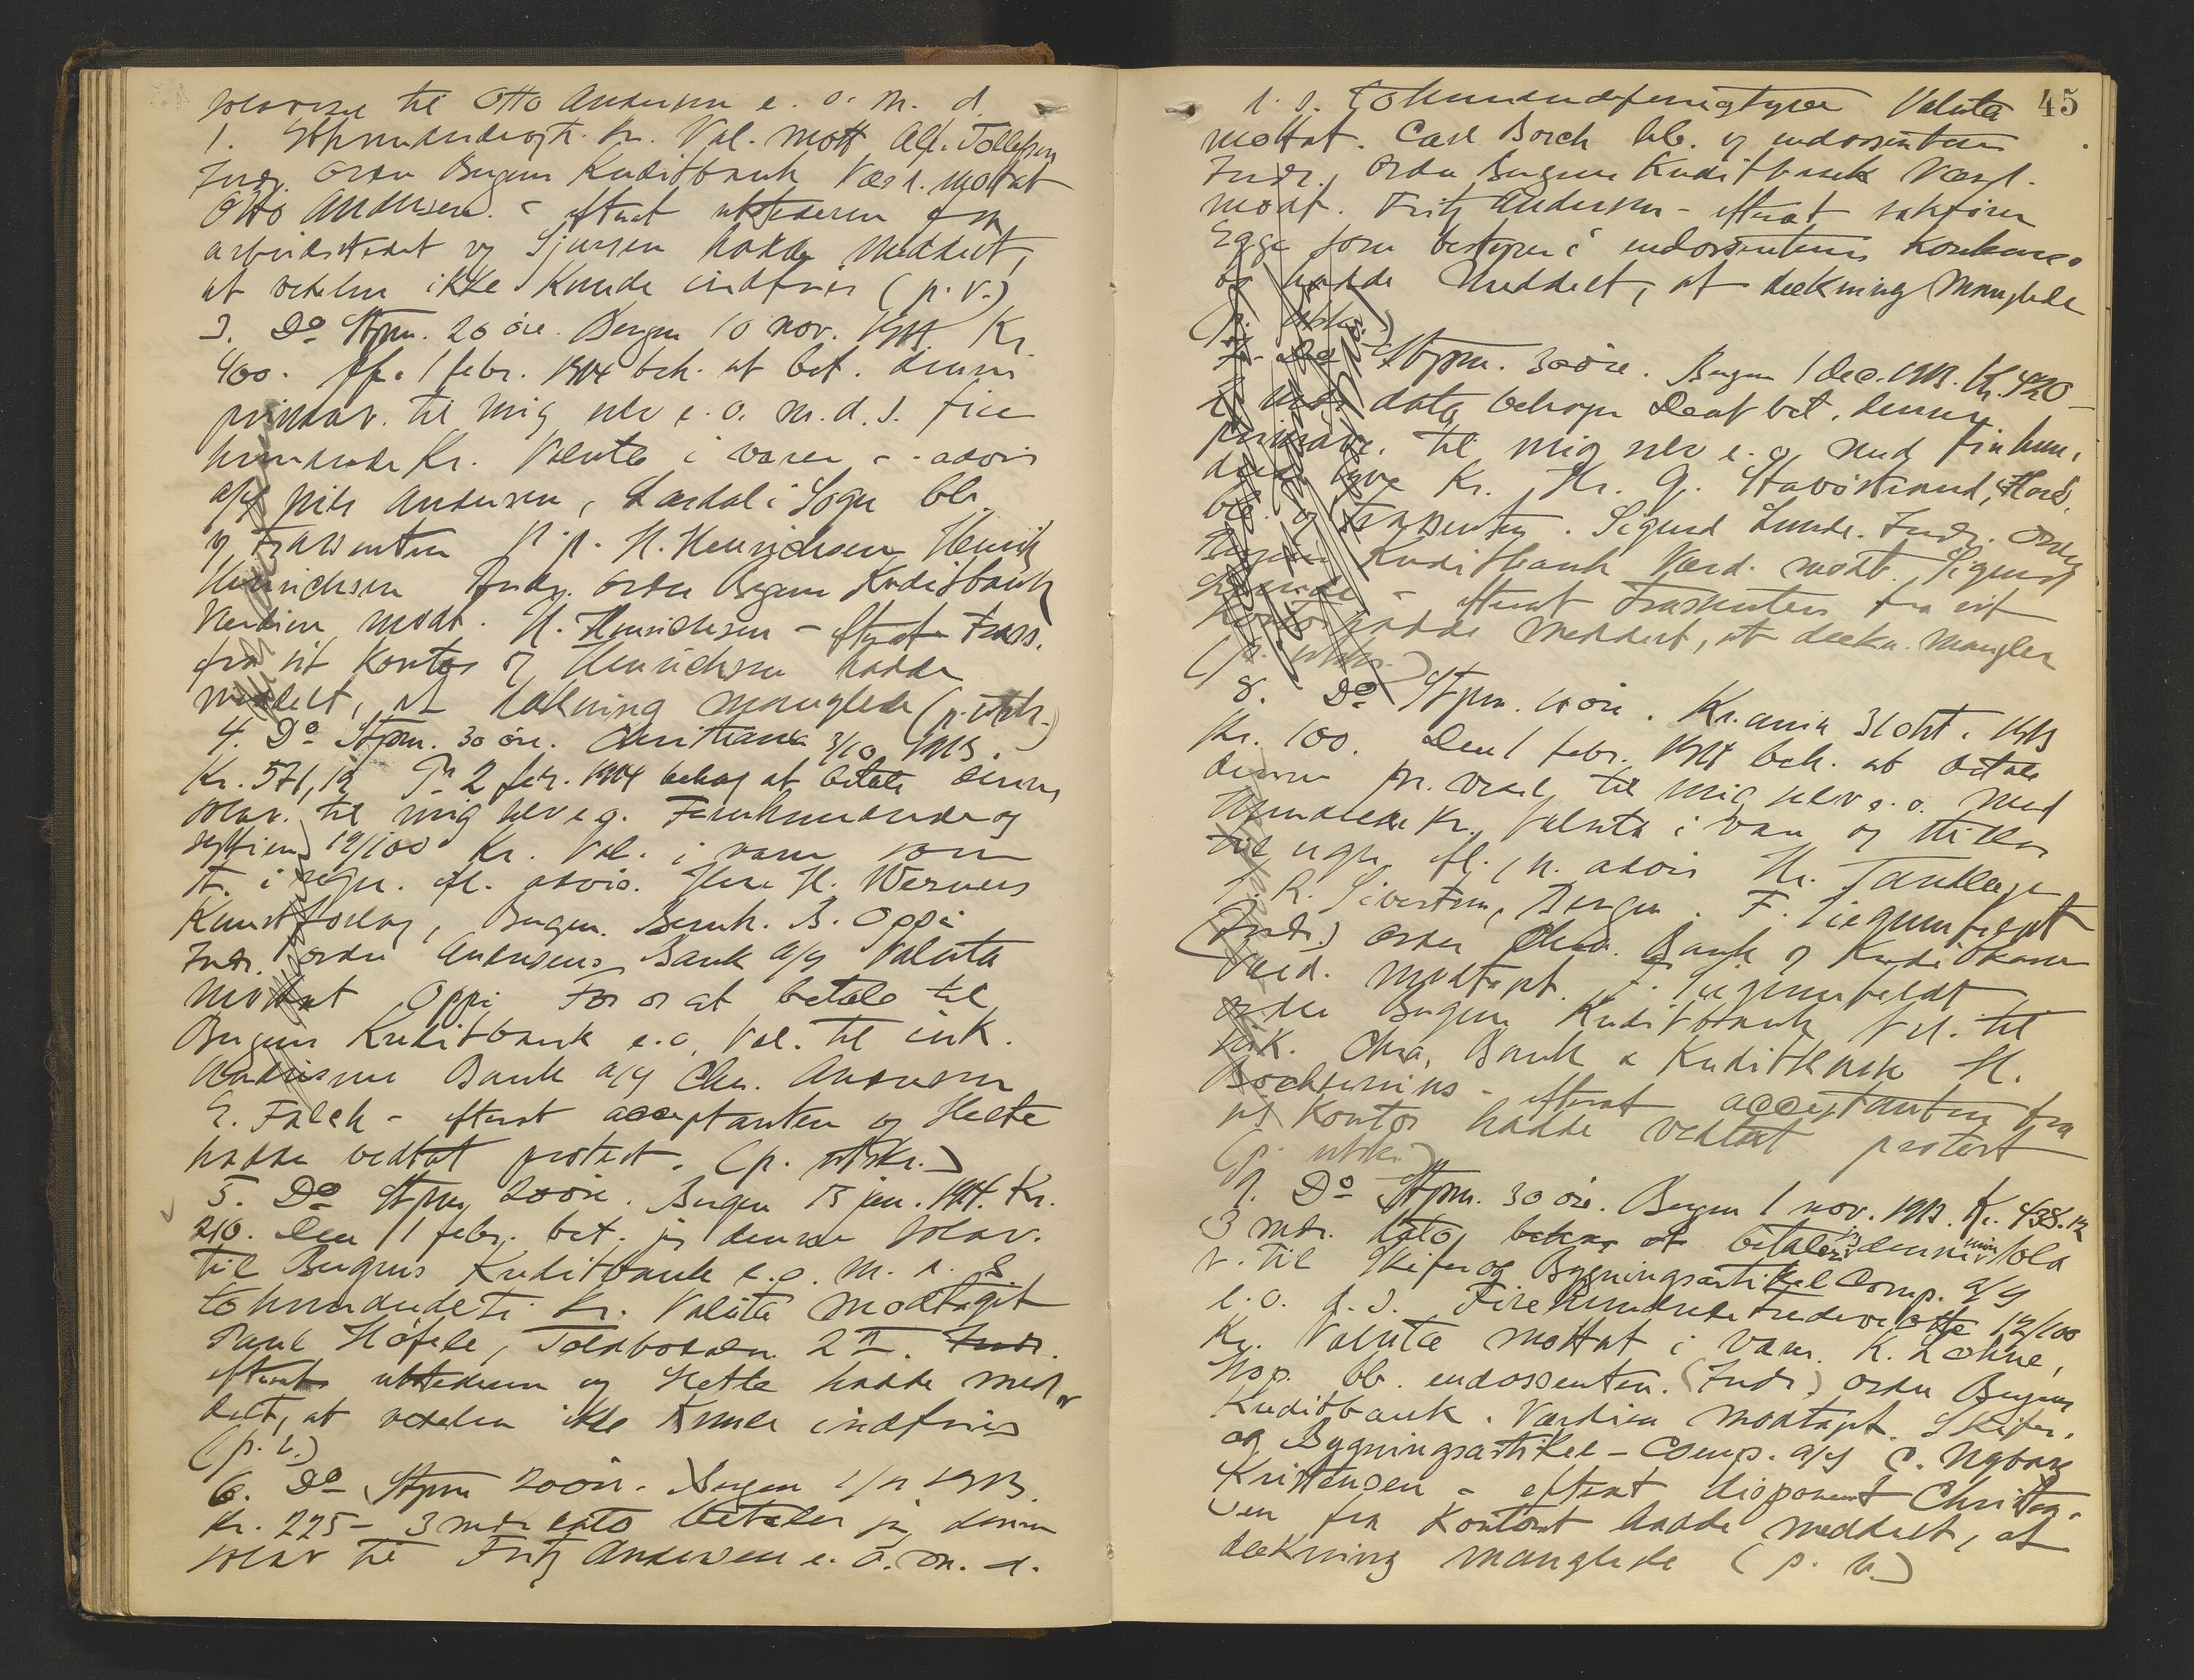 til Otto Andersen e. o. m. d.
1. Kr. Val. mott Alf. Tollefsen
Indr. ordre Bergens Kreditbank Værd. mottat
Otto Andersen. - efterat utstederen fra
arbeidstedet og Sjursen hadde meddelt,
at vekslen ikke kunde indfries (p. v.)
3. Do Stpm. 20 øre. Bergen 10 nov. Kr.
400. Pr. 1 febr. 1914 beh. at bet. denne
primav. til mig selv e. o. m. d. s. fire
hundrede Kr. Valuta i varer - advis
a/s Nils Andersen, Lærdal i Sogn bb.
og trassenten p. p. H. Henrichsen Henrik
Henrichsen Indr. ordre Bergens Kreditbank
Værdien modt. H. Henrichsen - efterat trass.
fra sit kontor og Henrichsen hadde
meddelt, at dækning manglede (p. utsk.)
4. Do Stpm. 30 øre. Christiania 3/10 1913.
Kr. 571,19 Pr. 2 febr. 1914 behag at betale denne
solav. til mig selv e. o. Femhundrede og
syttien 19/100 Kr. Val. i varer som
st. i regn. efl. advis. Herr H. Werners
Kunstforlag, Bergen. Bernh. B. Oppi
Indr. ordre Andresens Bank a/s Valuta
Mottat Oppi For os at betale til
Bergens Kreditbank e. o. Val. til ink.
Andresens Bank a/s Chr. Andresen
E. Falch - efterat acceptanten og Helle
hadde vedtat protest. (p. utskr.)
5. Do Stpm 20 øre. Bergen 15 jan. 1914. Kr.
210. Den 1 febr. bet. jeg denne solav.
til Bergens Kreditbank e. o. m. d. s.
tohundredeti Kr. Valuta modtagit
Paul Høfele, Toldbodalm. 2 II. Indr.
efterat utstederen og Hetle hadde med
delt, at vekslen ikke kunde indfries
(p. v.)
6. Do Stpm 20 øre. Bergen 1/11 1913.
Kr. 225 - 3 mdr dato betaler jeg denne
solav til Fritz Andersen e. o. m. d.
45
d. s. Tohundredefemogtyve Valuta
mottat. Carl Borch bb. og endossenten
Indr. ordre Bergens Kreditbank Værd.
modt. Fritz Andersen - efterat sakfører
Egge som bestyrer i endossentens konkurs
bo hadde meddelt, at dækning manglede
(p. utskr.)
7. Do Stpm. 30 øre. Bergen 1 dec. 1913. Kr. 420 -
2 mdr dato behager De at bet. denne
primav. til mig selv e. o. med firehun.
drede tyve Kr. Hr. G. Stavøstrand,
bb. og trassenten. Sigurd Lunde. Indr. ordre
Bergens Kreditbank Værd. modt. Sigurd
Lunde - efterat trassenten fra sit
kontor hadde meddelt, at dækn. mangler
(p. utskr.)
8. Do Stpm. 10 øre. Kr.ania 31 okt. 1913
Kr. 100. Den 1 febr. 1914 beh. at betale
denne pr. veksel til mig selv e. o. med
Hundrede Kr. Valuta i vare og stilles
til regn. efl. / n. advis Hr. Tandlæge
R. Sivertsen, Bergen. F. Ziegumfeldt
(Indr.) ordre Chra. Bank og Kreditkasse
Værd. modtagt. F. Ziegumfeldt
ordre Bergens Kreditbank Val. til
ink. Chra. Bank & Kreditkasse H.
- efterat acceptanten fra
sit kontor hadde vedtat protest
(p. utskr.)
9. Do Stpm. 30 øre. Bergen 1 nov. 1913. Kr. 438.12
3 mdr. dato behag at betaler jeg denne min sola
v. til Skifer og Bygningsartikel Comp. a/s
e. o. d. s. Firehundrede tredveotte 12/100
Kr. Valuta mottat i vare. K. Lohne,
Hop. bb. endossenten. (Indr.) ordre Bergens
Kreditbank. Værdien modtagt. Skifer.
og Bygningsartikel - Comp. a/s C. Nybom
Kristensen - efterat disponent Christen.
sen fra kontoret hadde meddelt, at
dækning manglede (p. u.)